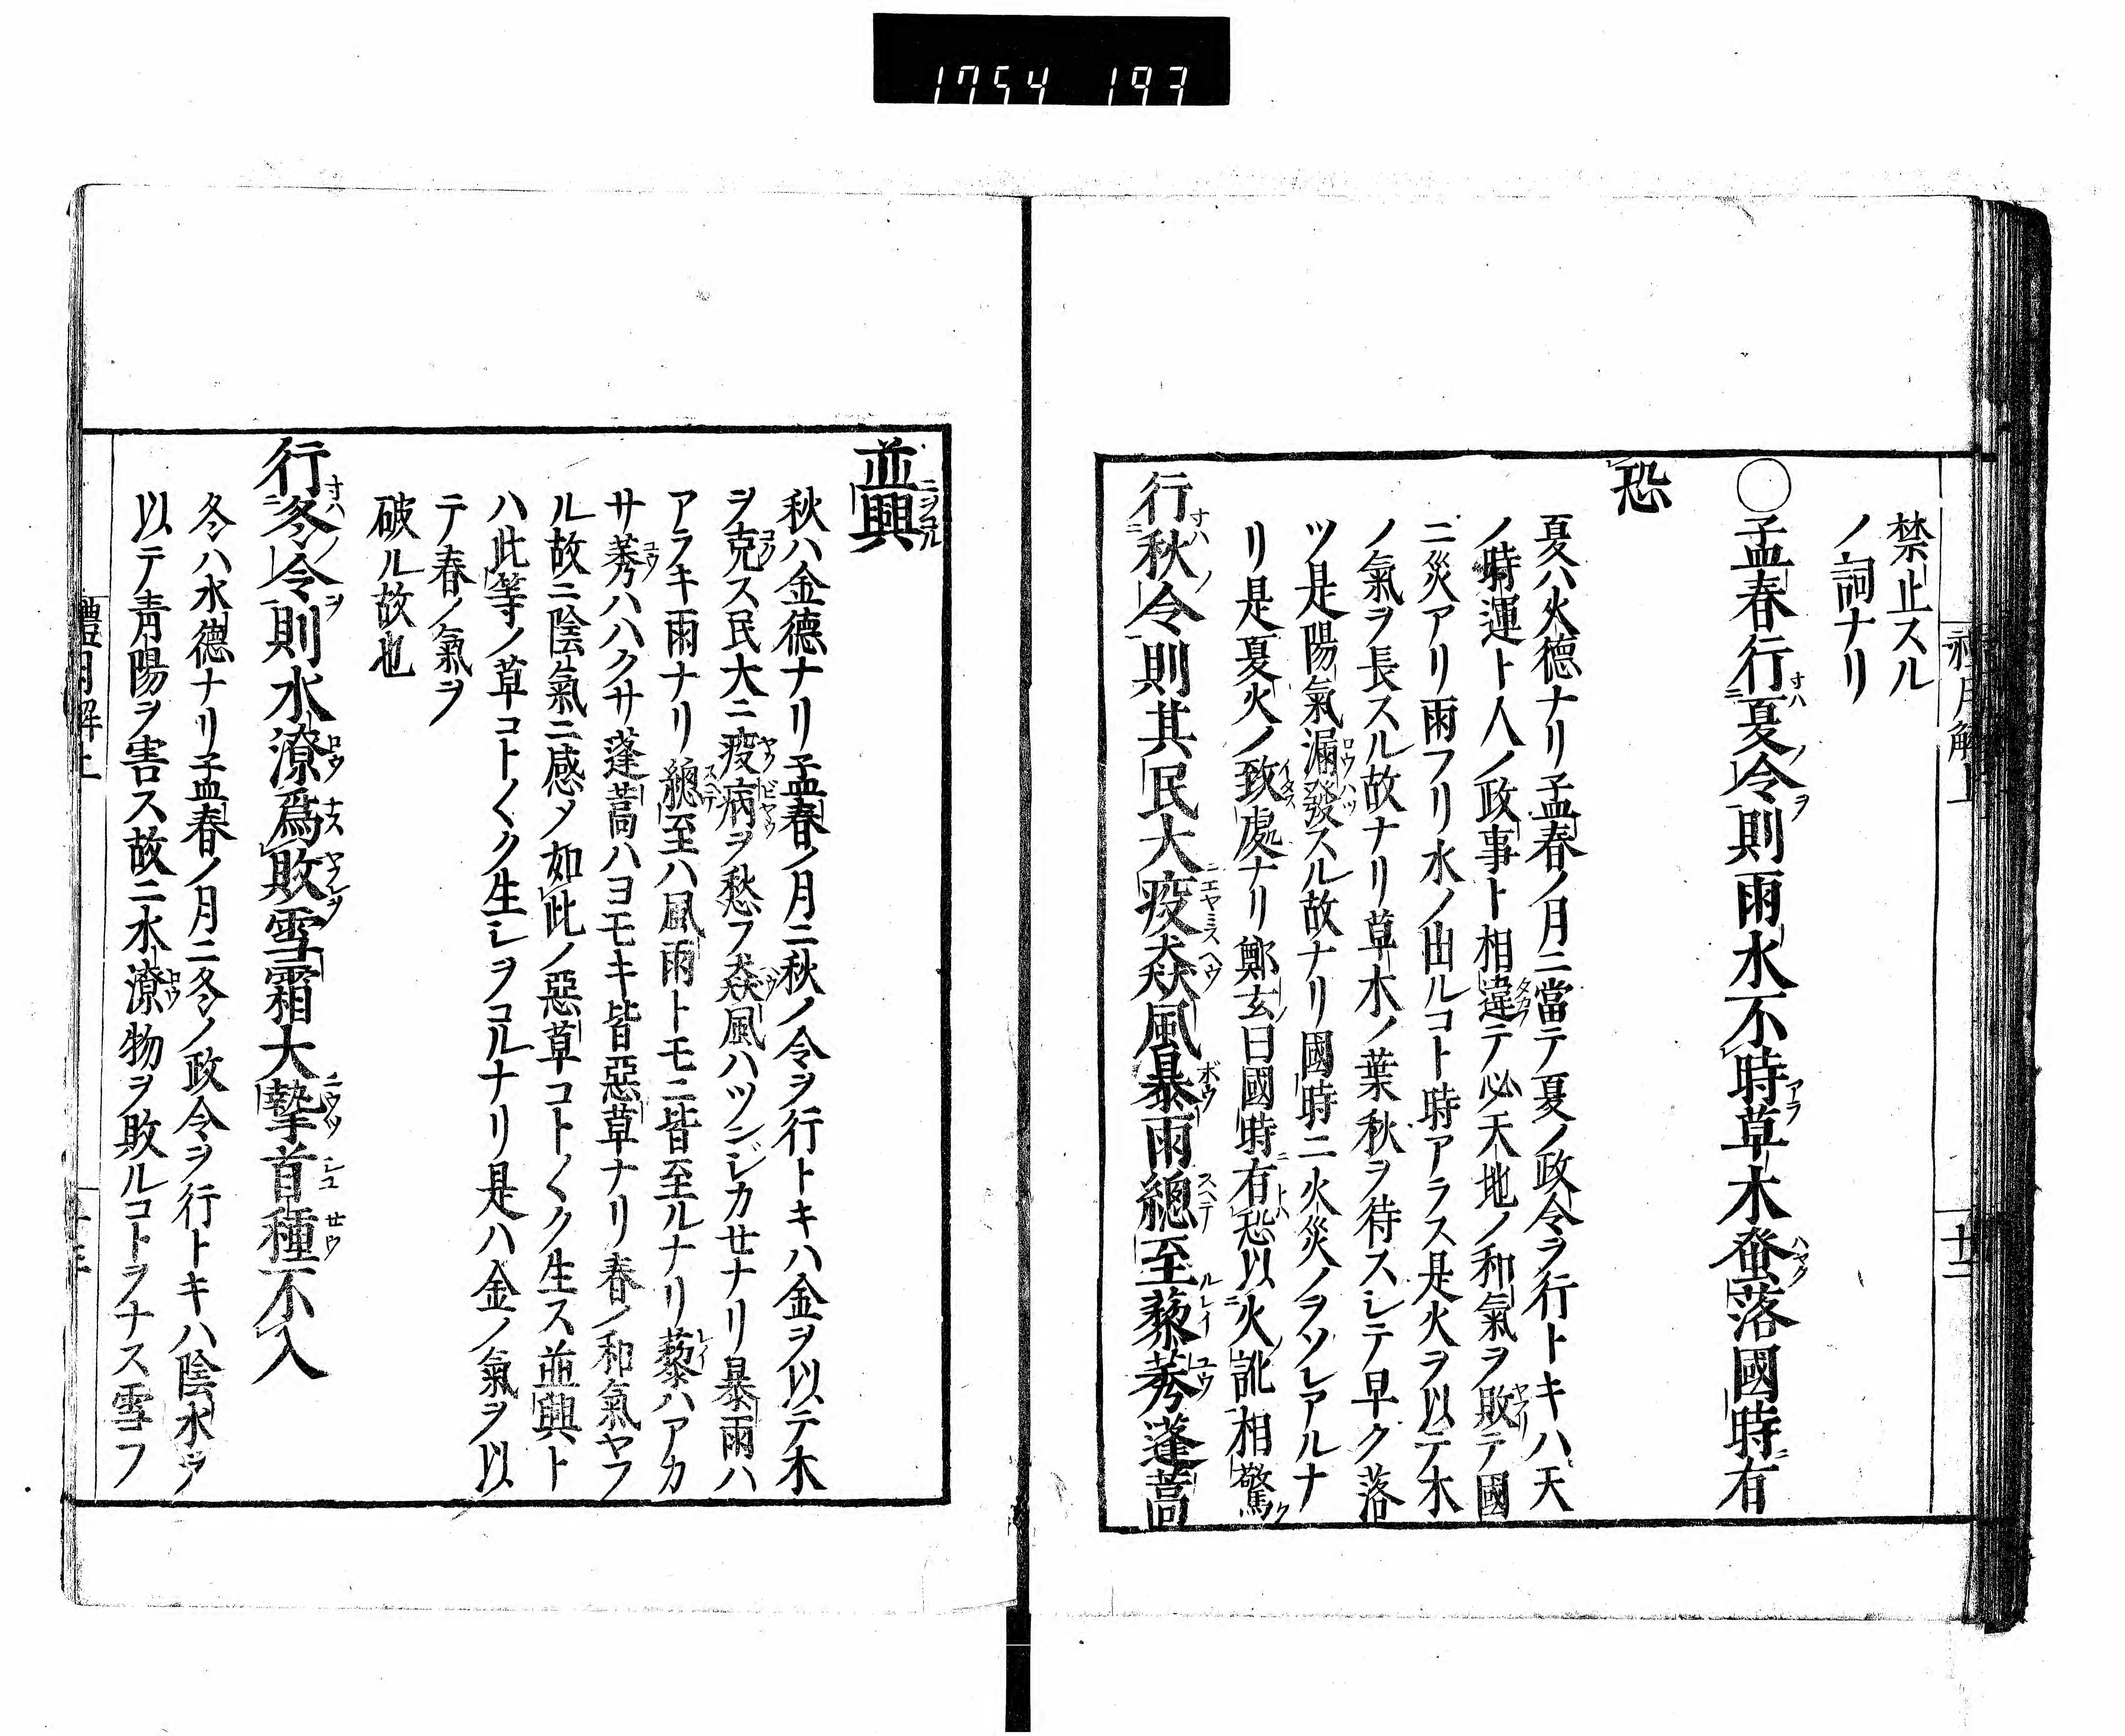 1754 193
禁止スル
ノ詞ナリ
○孟春行夏令則雨水不時草木蚤落國時有
恐
夏ハ火徳ナリ孟春ノ月ニ當テ夏ノ政令ヲ行トキハ天
ノ時運ト人ノ政事ト相違テ必天地ノ和氣ヲ敗テ國
ニ災アリ雨フリ水ノ出ルコト時アラス是火ヲ以テ木
ノ氣ヲ長スル故ナリ草木ノ葉秋ヲ待スシテ早ク落
ツ是陽氣漏發スル故ナリ國時ニ火災ノヲソレアルナ
リ是夏火ノ致處ナリ鄭玄曰國時有恐以火訛相驚
行秋令則其民大疫猋風暴雨總至藜莠蓬蒿
十二
並興
秋ハ金徳ナリ孟春ノ月ニ秋ノ令ヲ行トキハ金ヲ以テ木
ヲ克ス民大ニ疫病ヲ愁フ猋風ハツジカセナリ暴雨ハ
アラキ雨ナリ總至ハ風雨トモニ皆至ルナリ藜ハアカ
サ莠ハハクサ蓬蒿ハヨモキ皆惡草ナリ春ノ和氣ヤフ
ル故ニ陰氣ニ感メ如此ノ惡草コト〱ク生ス並興ト
ハ此等ノ草コト〱ク生シヲコルナリ是ハ金ノ氣ヲ以
テ春ノ氣ヲ
破ル故也
行冬令則水潦爲敗雪霜大摯首種不入
冬ハ水徳ナリ孟春ノ月ニ冬ノ政令ヲ行トキハ陰水ヲ
以テ青陽ヲ害ス故ニ水潦物ヲ敗ルコトヲナス雪フ
禮月解上